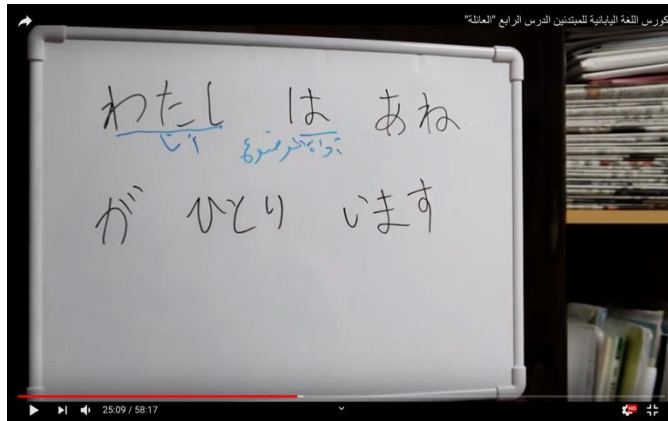 كورس اللغة اليابانية للمبتدئين الدرس الرابع "العائلة"
わたし は あね
أنا أداة الموضوع
が ひとり います
25:09 / 58:17
HD